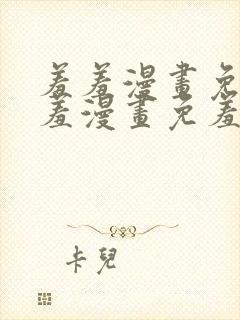 羞羞漫畫免
羞漫畫免羞
卡兒